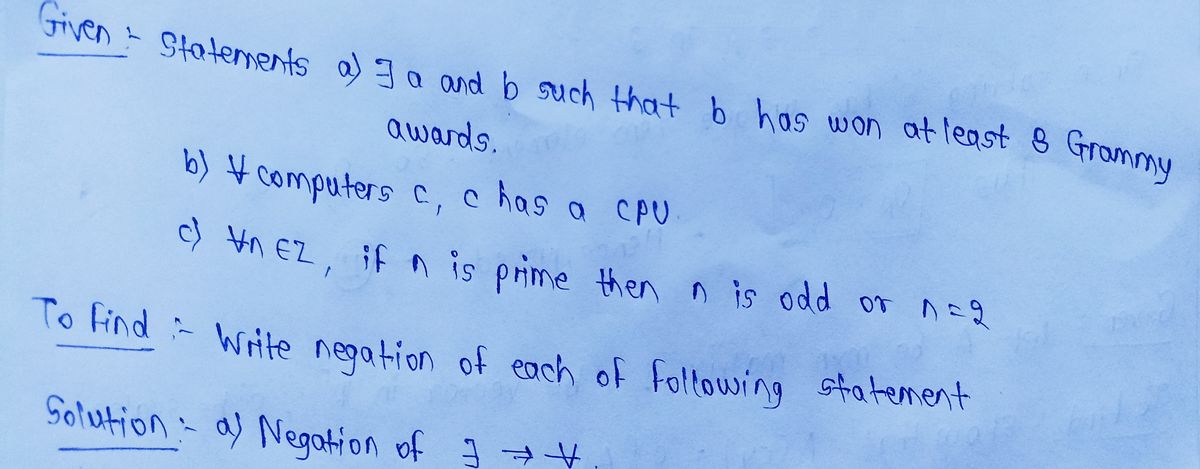 Given :- Statements a) ∃ a and b such that b has won atleast 8 Grammy
awards.
b) ∀ computers c, c has a CPU.
c) ∀n ∈ Z, if n is prime then n is odd or n=2
To find :- Write negation of each of following statement
Solution :- a) Negation of ∃ → ∀.